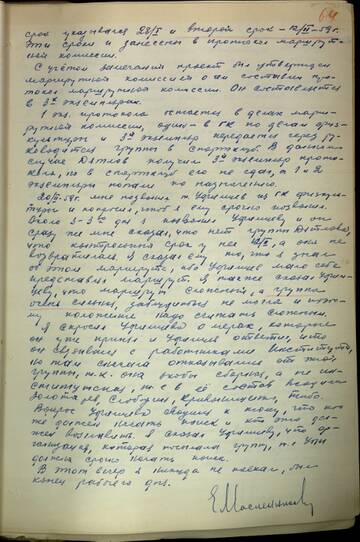 64
срок указывался 28/I и второй срок – 12/II-59г.
Эти сроки и занесены в протокол маршрут-
ной комиссии.
С учётом замечания проект был утверждён
маршрутной комиссией о чём составлен про-
токол маршрутной комиссии. Он составляется
в 3х экземплярах.
1 экз. протокола остаётся в делах марш-
рутной комиссии, один – в ГК по делам физ-
культуры и 3й экземпляр передаётся через ру-
ководителя группы в спортклуб. В данном
случае Дятлов получил 3й экземпляр прото-
кола, но в спортклуб его не сдал, а 1 и 2
экземпляры попали по назначению.
мне позвонил т. Уфимцев из ГК физкуль-
туры и попросил, чтоб я ему срочно позвонил.
Около 3 дня я позвонил Уфимцеву и он
сразу же мне сказал, что нет группы Дятлова,
что контрольный срок у неё 12/II, а она не
возвратилась. Я сказал ему то, что я знал
об этом маршруте, ибо Уфимцев мало себе
представлял маршрут. Я также сказал Уфим-
цеву, что маршрут сложный, а группа
очень сильная, заблудиться не могла и поэто-
му положение надо считать сложным.
Я спросил Уфимцева о мерах, которые
он уже принял и Уфимцев ответил, что
он связывался с работниками института,
но там сначала отказывались от этой
группы, т.к. она якобы сборная, а не ин-
ститутская, т.к. в её состав входили
Золотарев, Слободин, Кривонищенко, Тибо.
Вопрос Уфимцева сводился к тому, что кто
же должен начать поиск и кто это дол-
жен возглавить. Я сказал Уфимцеву, что ор-
ганизация, которая послала группу, т.е. УПИ
должна срочно начать поиск.
В этот вечер я никуда не поехал, был
конец рабочего дня.
ЕМасленников